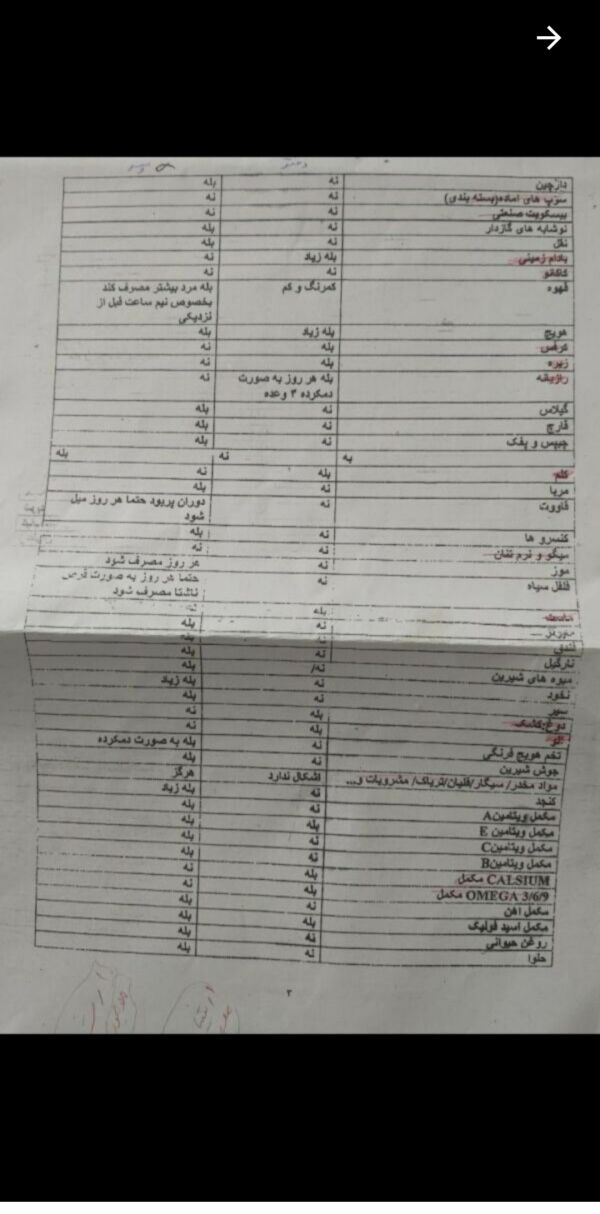 دختر
دارچین نه بله
سوپ های آماده(بسته بندی) نه نه
بیسکویت صنعتی نه نه
نوشابه های گازدار نه بله
نقل نه بله
بادام زمینی بله زیاد نه
کاکائو نه نه
قهوه کمرنگ و کم بله مرد بیشتر مصرف کند
بخصوص نیم ساعت قبل از
نزدیکی
هویج بله زیاد بله
کرفس بله نه
زیره بله نه
رازیانه بله هر روز به صورت نه
دمکرده ۳ وعده
گیلاس نه بله
قارچ نه بله
چیپس و پفک نه بله
به نه بله
کلم بله نه
مربا نه بله
قاووت نه دوران پریود حتما هر روز میل
شود
کنسرو ها نه بله
میگو و نرم تنان نه نه
موز نه هر روز مصرف شود
فلفل سیاه نه حتما هر روز به صورت قرص
ناشتا مصرف شود
بله نه
نه بله
فندق نه بله
نارگیل نه بله
میوه های شیرین نه بله زیاد
نخود نه بله
سیر نه بله
دوغ/کشک بله نه
آلو بله نه
تخم هویج فرنگی نه بله به صورت دمکرده
جوش شیرین نه بله
مواد مخدر/ سیگار/قلیان/تریاک/ مشروبات و... اشکال ندارد هرگز
کنجد نه بله زیاد
مکمل ویتامینA نه بله
مکمل ویتامین E بله بله
مکمل ویتامینC نه بله
مکمل ویتامینB نه بله
CALSIUM مکمل بله نه
OMEGA 3/6/9 مکمل بله نه
مکمل آهن نه بله
مکمل اسید فولیک بله بله
روغن حیوانی نه بله
حلوا نه بله
۲